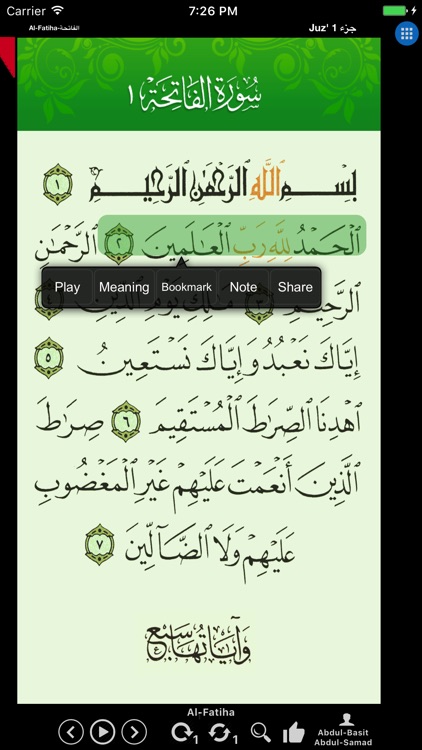 Carrier 7:26 PM
Al-Fatiha-الفاتحة Juz' 1 جزء
سُورَةُ الفَاتِحَةِ ١
بِسْمِ اللَّهِ الرَّحْمَٰنِ الرَّحِيمِ ١
ٱلْحَمْدُ لِلَّهِ رَبِّ ٱلْعَٰلَمِينَ ٢ ٱلرَّحْمَٰنِ
Play Meaning Bookmark Note Share
ٱلرَّحِيمِ ٣ مَٰلِكِ يَوْمِ ٱلدِّينِ ٤
إِيَّاكَ نَعْبُدُ وَإِيَّاكَ نَسْتَعِينُ ٥
ٱهْدِنَا ٱلصِّرَٰطَ ٱلْمُسْتَقِيمَ ٦ صِرَٰطَ
ٱلَّذِينَ أَنْعَمْتَ عَلَيْهِمْ غَيْرِ ٱلْمَغْضُوبِ
عَلَيْهِمْ وَلَا ٱلضَّآلِّينَ ٧
وَآيَاتُهَا سَبْعٌ
Al-Fatiha
1 1
Abdul-Basit
Abdul-Samad